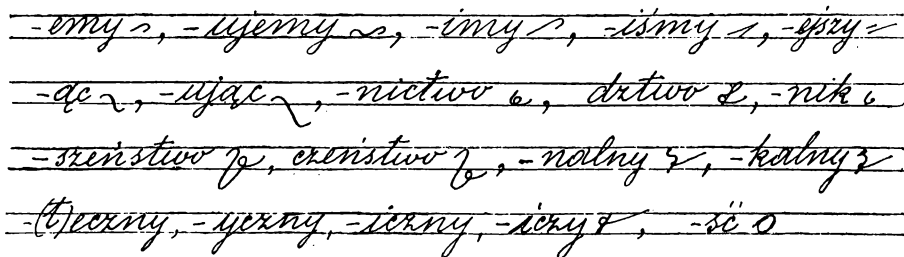 -emy, -ujemy, -imy, -iśmy, -ejszy
-ąc, -ując, -nictwo, dztwo, -nik
-szeństwo, czeństwo, -nalny, -kalny
-(t)eczny, -yczny, -iczny, -iczy, -ść